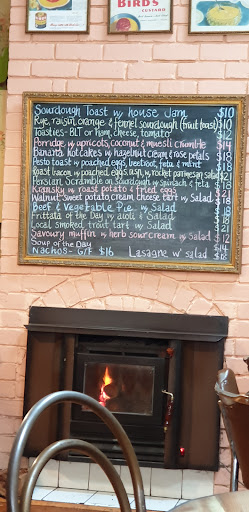 BIRD'S
CUSTARD
Sourdough Toast w house Jam $10
Rye, raisin, orange & fennel sourdough (fruit toast) $10
Toasties- BLT or Ham, cheese, tomato $12
Porridge w apricots, coconut & muesli crumble $14
Banana hotcakes w hazelnut cream & rose petals $18
Pesto toast w poached eggs, beetroot, feta & mint $18
Toast bacon w poached eggs w rocket parmesan salad
Persian Scramble on sourdough w spinach & feta $18
Kransky w roast potato & fried eggs
Walnut sweet potato cream cheese tart w salad $18
Beef & Vegetable Pie w Salad
Frittata of the Day w aioli & Salad
Local smoked trout tart w Salad
Savoury muffin w herb sour cream w Salad $12
Soup of the Day $14
Nachos- G/F $16 Lasagne w' salad $18